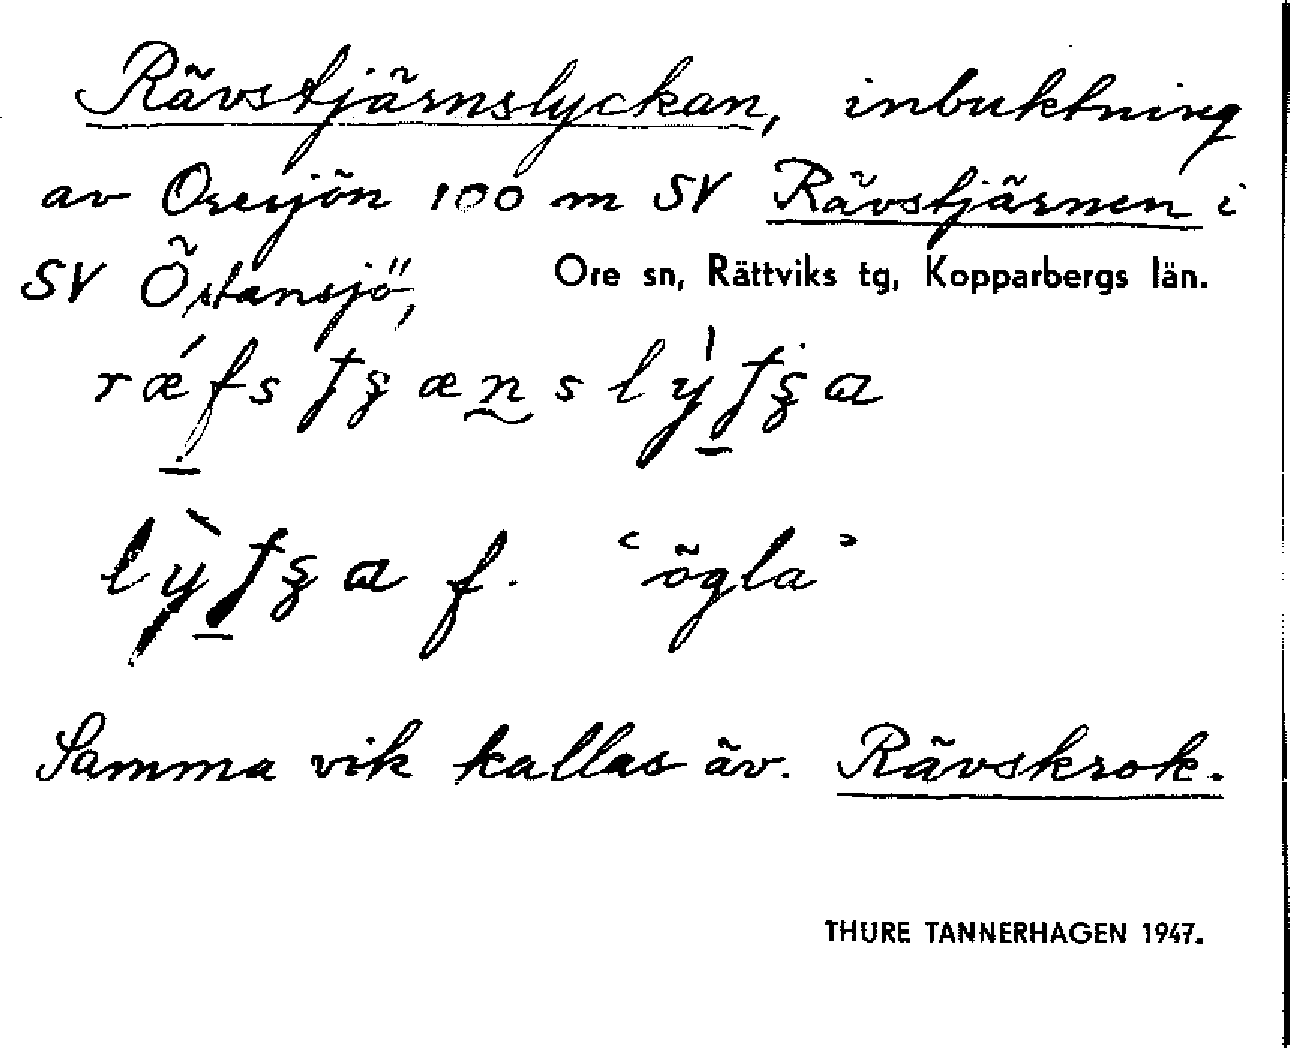 Rävstjärnslyckan, inbuktning
av Oresjön 100 m SV Rävstjärnen i
SV Östansjö,
Ore sn, Rättviks tg, Kopparbergs län.
f. "ögla"
Samma vik kallas äv. Rävskrok.
THURE TANNERHAGEN 1947.